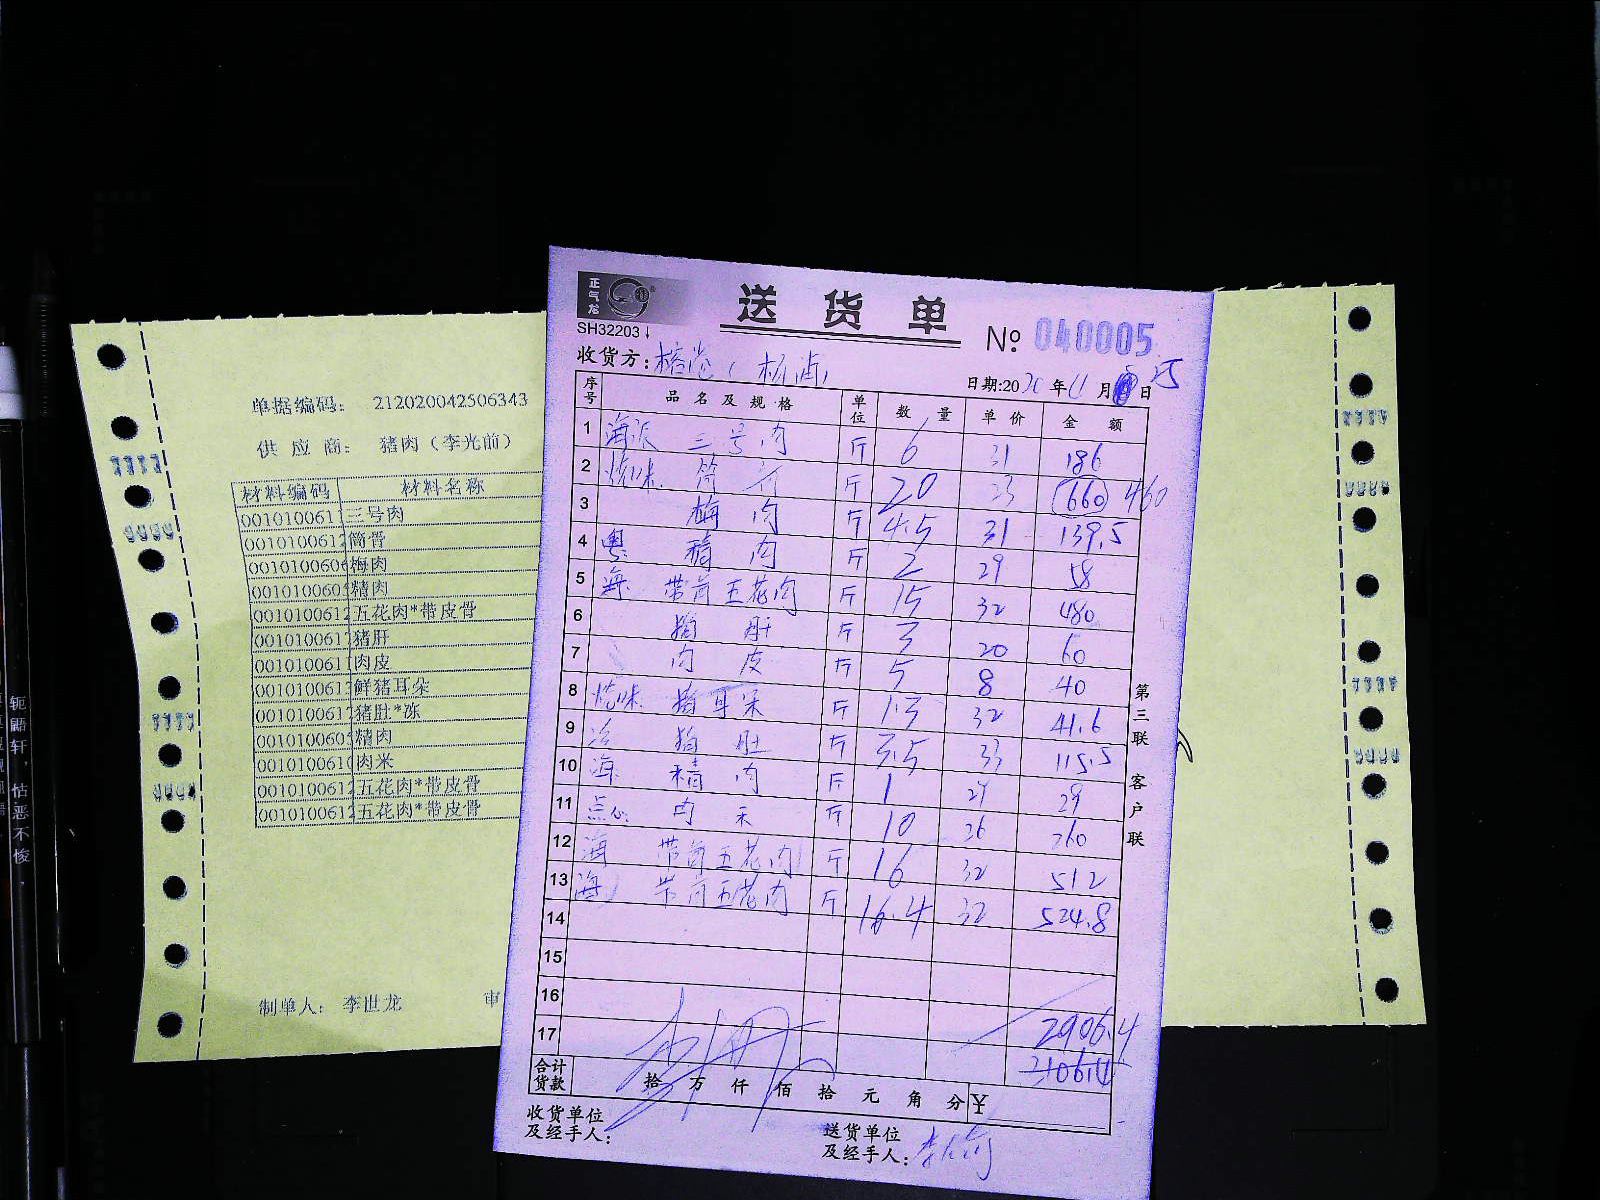 单据编码: 212020042506343
供 应 商: 猪肉（李光前）
材料编码 材料名称
0010100611 三号肉
0010100612 筒骨
0010100606 梅肉
0010100605 精肉
0010100612 五花肉*带皮骨
0010100617 猪肝
0010100611 肉皮
0010100613 鲜猪耳朵
0010100617 猪肚*冻
0010100605 精肉
0010100610 肉米
0010100612 五花肉*带皮骨
0010100612 五花肉*带皮骨
制单人: 李世龙 审
正气龙
SH32203
送货单
№ 040005
收货方:
日期:2020年11月 25日
序号 品名及规格 单位 数量 单价 金额
1 海派 三号肉 斤 6 31 186
2 烧味 筒 斤 20 23 (660) 460
3 梅肉 斤 4.5 31 139.5
4 粤 精肉 斤 2 29 58
5 海 带骨五花肉 斤 15 32 480
6 猪肝 斤 3 20 60
7 肉皮 斤 5 8 40
8 烧味 猪耳朵 斤 1.3 32 41.6
9 冷 猪肚 斤 3.5 33 115.5
10 海 精肉 斤 1 29 29
11 点心 肉米 斤 10 26 260
12 海 带骨五花肉 斤 16 32 512
13 海 带骨五花肉 斤 16.4 32 524.8
14
15
16
2906.4
17
3106.4
合计货款 拾 万 仟 佰 拾 元 角 分 ¥
收货单位
及经手人:
送货单位
及经手人:
第三联 客户联
轭鼯轩，怙恶不悛